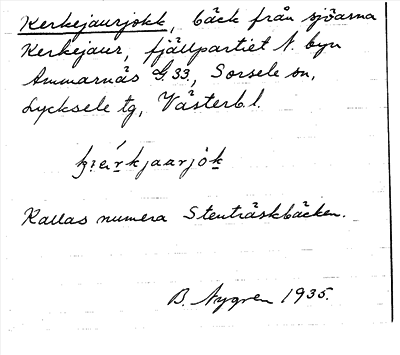 Kerkejaurjokk, bäck från sjöarna
Kerkejaur, fjällpartiet N. byn
Ammarnäs G. 33, Sorsele sn,
Lycksele tg, Västerb. l.
Kallas numera Stenträskbäcken.
B. Nygren 1935.